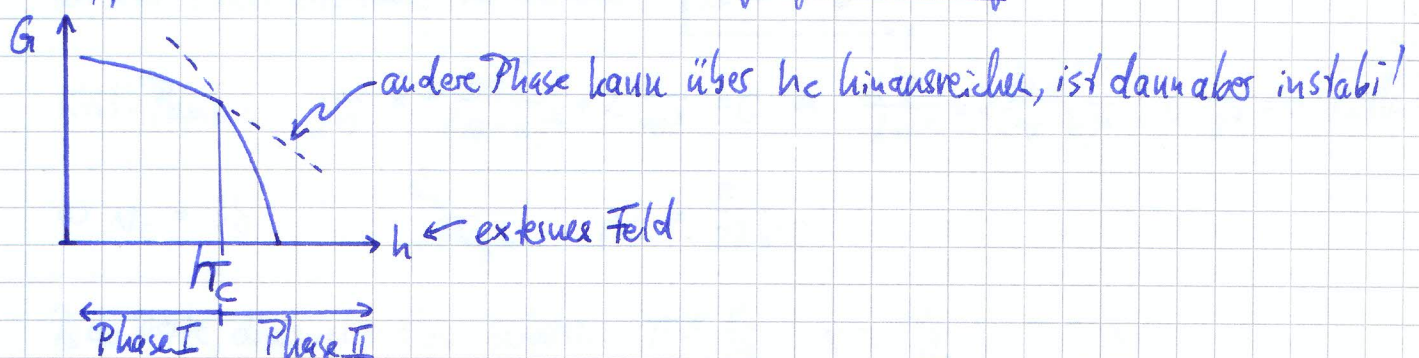 G
andere Phase kann über hc hinausreichen, ist dann aber instabil
h ← externes Feld
hc
Phase I Phase II